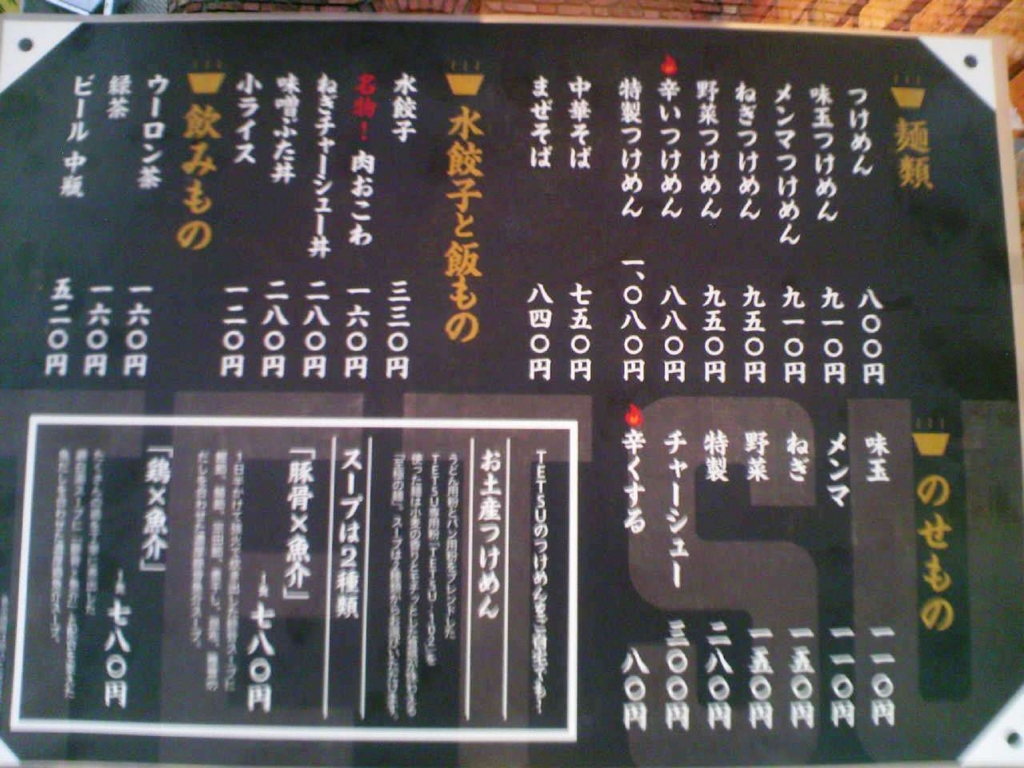 麺類
つけめん 八〇〇円
味玉つけめん 九一〇円
メンマつけめん 九一〇円
ねぎつけめん 九五〇円
野菜つけめん 九五〇円
辛いつけめん 八八〇円
特製つけめん 一、〇八〇円
中華そば 七五〇円
まぜそば 八四〇円
水餃子と飯もの
水餃子 三三〇円
名物！ 肉おこわ 一六〇円
ねぎチャーシュー丼 二八〇円
味噌ぶた丼 二八〇円
小ライス 一二〇円
飲みもの
ウーロン茶 一六〇円
緑茶 一六〇円
ビール 中瓶 五二〇円
のせもの
味玉 一一〇円
メンマ 一一〇円
ねぎ 一五〇円
野菜 一五〇円
特製 二八〇円
チャーシュー 三〇〇円
辛くする 八〇円
TETSUのつけめんをご自宅でも！
お土産つけめん
うどん用粉とパン用粉をブレンドした
TETSU専用粉「TETSU-102」を
スープは2種類
「豚骨×魚介」
一食 七八〇円
「鶏×魚介」
一食 七八〇円
TETSU